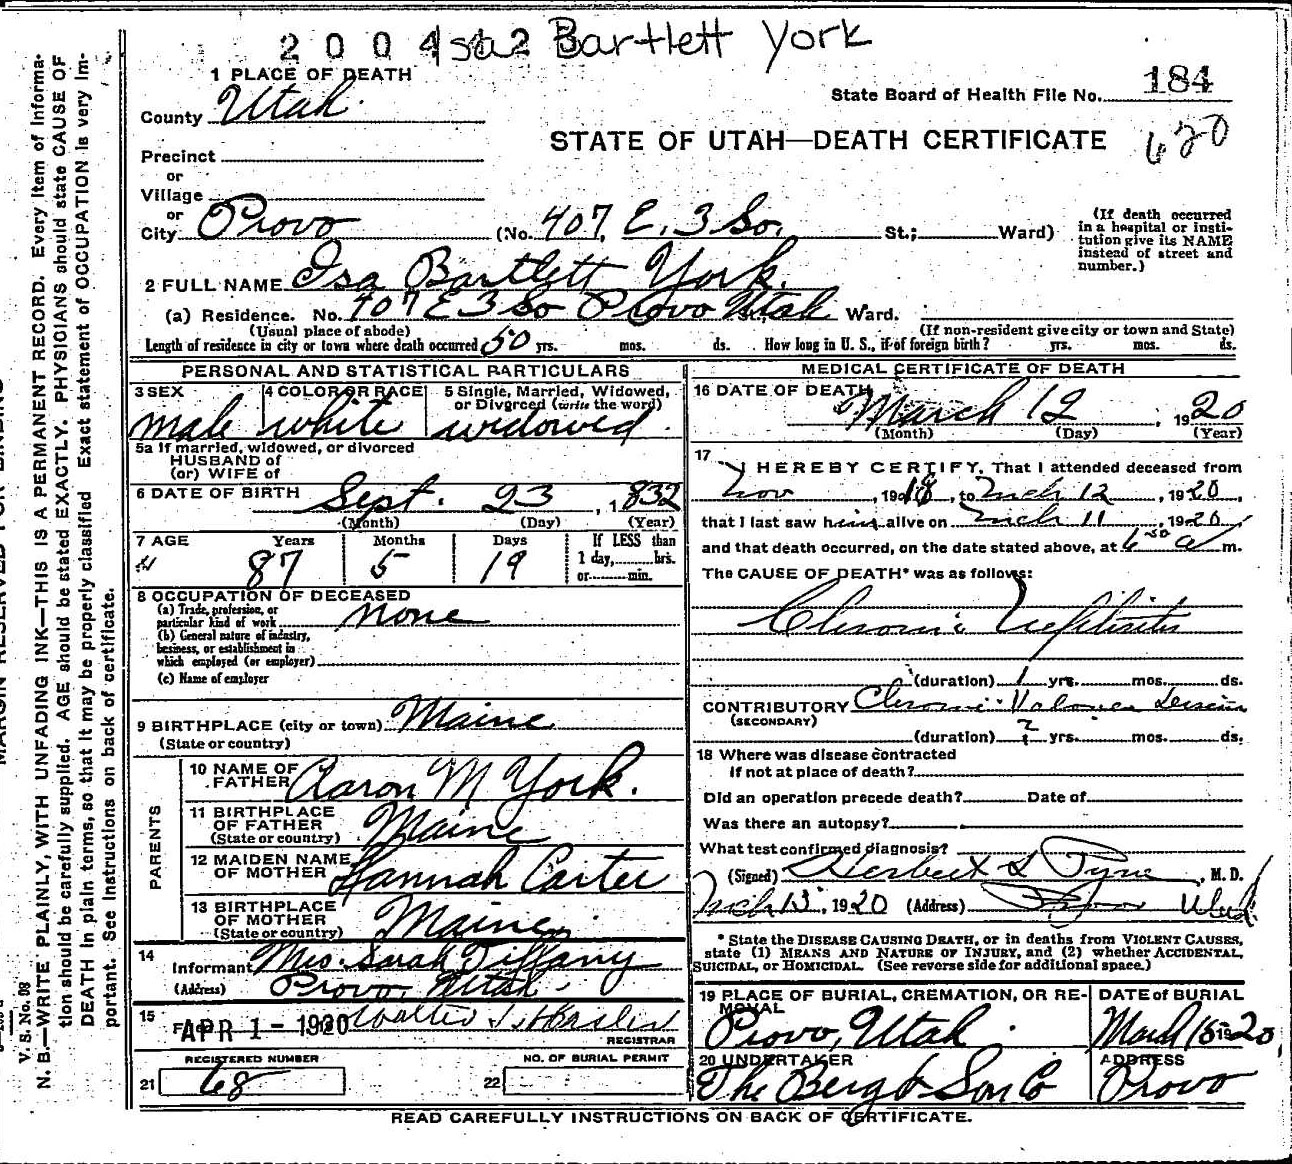 2004
Isa Bartlett York
1 PLACE OF DEATH
184
County Utah
State Board of Health File No.
STATE OF UTAH—DEATH CERTIFICATE
620
Precinct
or
Village
or
City Provo (No. 407 E. 3 So. St.; Ward)
(If death occurred in a hospital or institution give its NAME instead of street and number.)
2 FULL NAME Isa Bartlett York.
(a) Residence. No. 407 E 3 So Provo Utah Ward.
(Usual place of abode) (If non-resident give city or town and State)
Length of residence in city or town where death occurred 50 yrs. mos. ds. How long in U. S., if of foreign birth? yrs. mos. ds.
PERSONAL AND STATISTICAL PARTICULARS
3 SEX
male
4 COLOR OR RACE
white
5 Single, Married, Widowed, or Divorced (write the word)
widowed.
5a If married, widowed, or divorced
HUSBAND of
(or) WIFE of
6 DATE OF BIRTH Sept. 23, 1832
(Month) (Day) (Year)
7 AGE Years Months Days
87 5 19
If LESS than
1 day, hrs.
or min.
8 OCCUPATION OF DECEASED
(a) Trade, profession, or
particular kind of work none
(b) General nature of industry,
business, or establishment in
which employed (or employer)
(c) Name of employer
9 BIRTHPLACE (city or town) Maine
(State or country)
PARENTS
10 NAME OF
FATHER Aaron M York.
11 BIRTHPLACE
OF FATHER Maine
(State or country)
12 MAIDEN NAME
OF MOTHER Hannah Carter
13 BIRTHPLACE
OF MOTHER Maine
(State or country)
14
Informant Mrs. Sarah Tiffany
(Address) Provo, Utah.
15
APR 1 - 1920 Walter
REGISTRAR
REGISTERED NUMBER NO. OF BURIAL PERMIT
21 68 22
MEDICAL CERTIFICATE OF DEATH
16 DATE OF DEATH
March 12, 1920
(Month) (Day) (Year)
17
I HEREBY CERTIFY, That I attended deceased from
Nov, 1918, to Mch 12, 1920,
that I last saw him alive on Mch 11, 1920
and that death occurred, on the date stated above, at 6 30 a m.
The CAUSE OF DEATH* was as follows:
Chronic Nephritis
(duration) 1 yrs. mos. ds.
CONTRIBUTORY Chronic Valvular Lesion
(SECONDARY)
(duration) ? yrs. mos. ds.
18 Where was disease contracted
if not at place of death?
Did an operation precede death? Date of
Was there an autopsy?
What test confirmed diagnosis?
(Signed) Herbert S Pyne, M. D.
Mch 13, 1920 (Address) Provo Utah
* State the DISEASE CAUSING DEATH, or in deaths from VIOLENT CAUSES,
state (1) MEANS AND NATURE OF INJURY, and (2) whether ACCIDENTAL,
SUICIDAL, or HOMICIDAL. (See reverse side for additional space.)
19 PLACE OF BURIAL, CREMATION, OR REMOVAL
Provo, Utah.
DATE of BURIAL
March 15 1920
20 UNDERTAKER
The Berg & Son Co
ADDRESS
Provo
READ CAREFULLY INSTRUCTIONS ON BACK OF CERTIFICATE.
V. S. No. 98
N. B.—WRITE PLAINLY, WITH UNFADING INK—THIS IS A PERMANENT RECORD. Every item of informa-
tion should be carefully supplied. AGE should be stated EXACTLY. PHYSICIANS should state CAUSE OF
DEATH in plain terms, so that it may be properly classified. Exact statement of OCCUPATION is very im-
portant. See instructions on back of certificate.